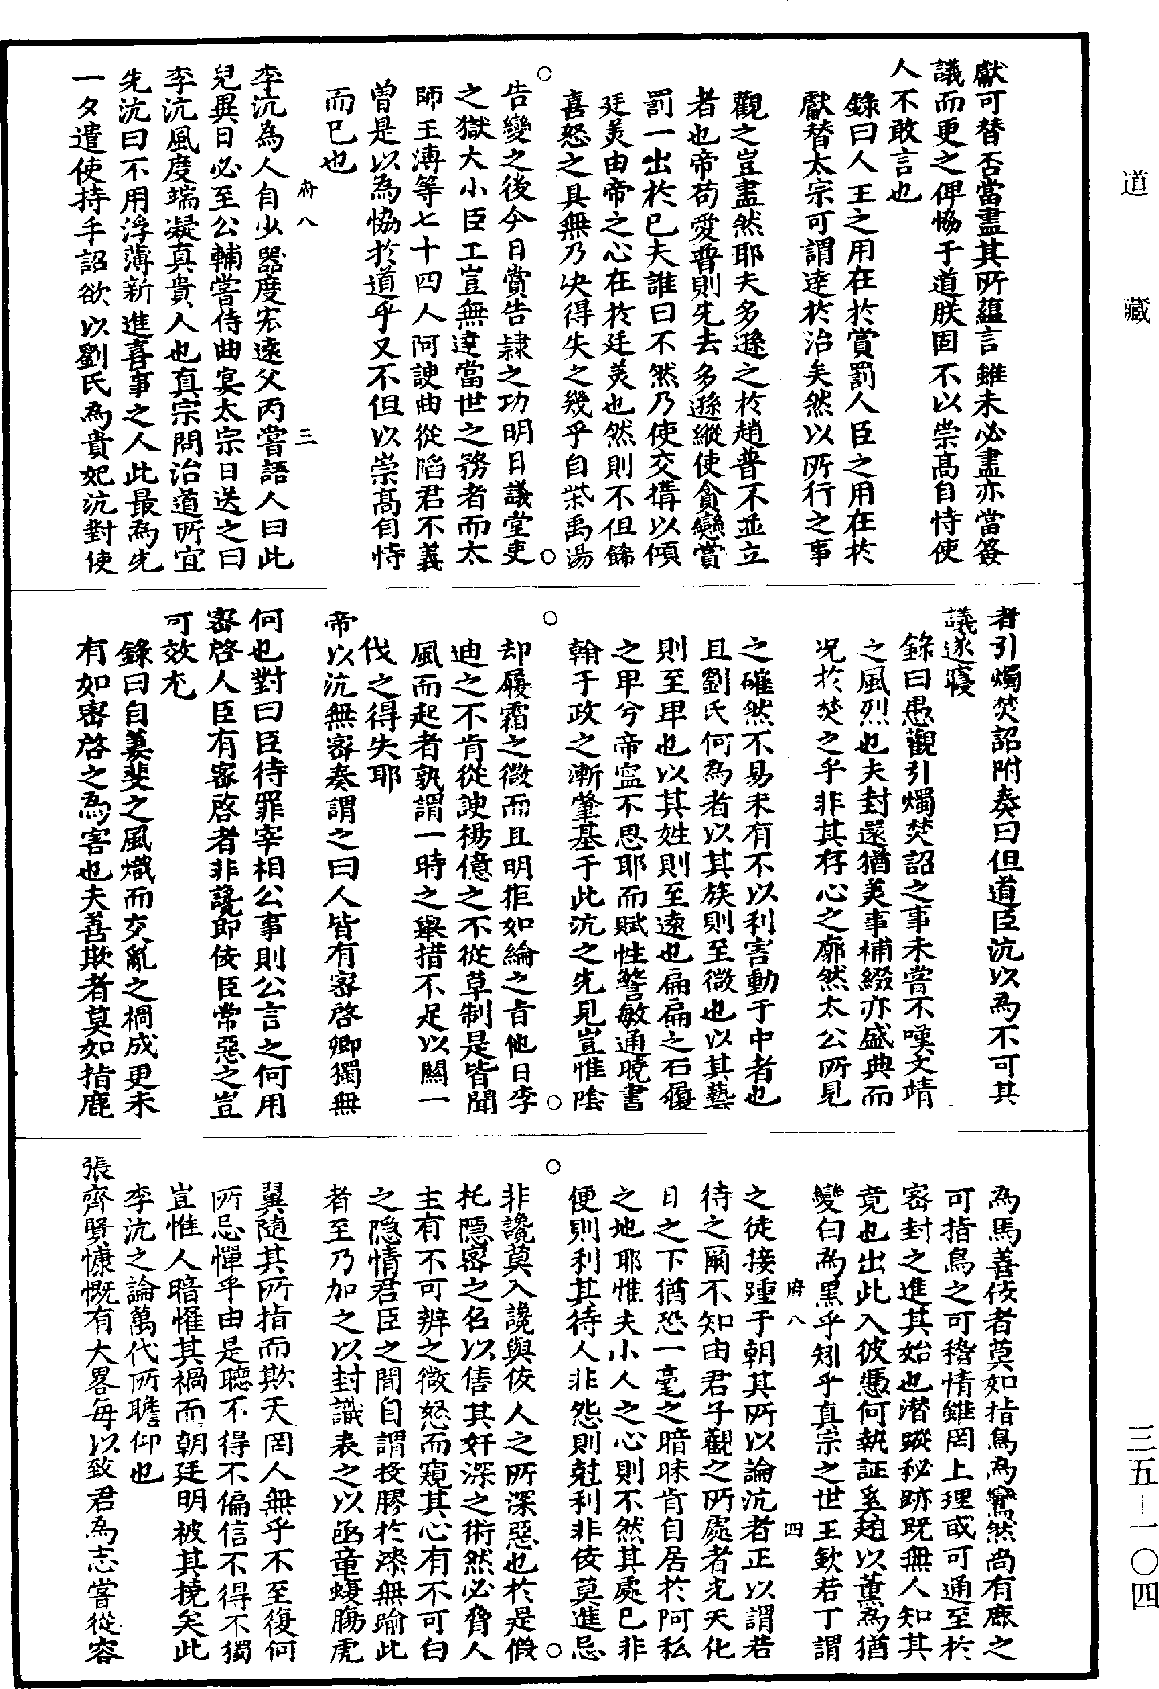 道藏
三五—一〇四
獻可替否當盡其所蘊言雖未必盡亦當簽
議而更之俾恊于道朕固不以崇高自恃使
人不敢言也
錄曰人王之用在於賞罰人臣之用在於
獻替太宗可謂達於治矣然以所行之事
觀之豈盡然耶夫多遜之於趙普不並立
者也帝苟愛普則先去多遜縱使貪戀當
罰一出於已夫誰曰不然乃使交構以傾
廷美由帝之心在於廷美也然則不但飾
喜怒之具無乃决得失之幾乎自桀禹湯
告變之後今日賞告隷之功明日議堂吏
之獄大小臣工豈無達當世之務者而太
師王溥等七十四人阿諛曲從陷君不義
曾是以為恊於道乎又不但以崇高自恃
而已也
府八
三
李沆為人自少器度宏遠父丙嘗語人曰此
兒異日必至公輔嘗侍曲宴太宗目送之曰
李沆風度端凝真貴人也真宗問治道所宜
先沆曰不用浮薄新進喜事之人此最為先
一夕遣使持手詔欲以劉氏為貴妃沆對使
者引燭焚詔附奏曰但道臣沆以為不可其
議遂寢
錄曰愚觀引燭焚詔之事未嘗不嘆文靖
之風烈也夫封還猶美事補綴亦盛典而
况於焚之乎非其存心之廓然太公所見
之確然不易未有不以利害動于中者也
且劉氏何為者以其族則至微也以其藝
則至卑也以其姓則至遠也扁扁之石履
之卑兮帝寍不思耶而賦性警敏通曉書
翰于政之漸肇基于此沆之先見豈惟陰
却履霜之微而且明拒如綸之旨他日李
迪之不肯從諛楊億之不從草制是皆聞
風而起者孰謂一時之舉措不足以關一
代之得失耶
帝以沆無密奏謂之曰人皆有密啓卿獨無
何也對曰臣待罪宰相公事則公言之何用
密啓人臣有密啓者非讒即佞臣常惡之豈
可效尤
錄曰自萋斐之風熾而交亂之禍成更未
有如密啓之為害也夫善欺者莫如指鹿
為馬善佞者莫如指鳥為鸞然尚有鹿之
可指鳥之可稽情雖罔上理或可通至於
密封之進其始也潜蹤秘跡既無人知其
竟也出此入彼憑何執証奚趐以薰為猶
變白為黑乎矧乎真宗之世王欽若丁謂
府八
四
之徒接踵于朝其所以論沆者正以謂若
待之爾不知由君子觀之所處者光天化
日之下猶恐一毫之暗昧肯自居於阿私
之地耶惟夫小人之心則不然其處已非
便則利其待人非怨則尅利非佞莫進忌
非讒莫入讒與佞人之所深惡也於是假
托隱密之名以售其奸深之術然必脅人
主有不可辨之微怒而窺其心有不可白
之隱情君臣之間自謂投膠於漆無踰此
者至乃加之以封識表之以函章蜮腸虎
翼隨其所指而欺天罔人無乎不至復何
所忌憚乎由是聽不得不偏信不得不獨
豈惟人暗惟其禍而朝廷明被其撓矣此
李沆之論萬代所瞻仰也
張齊賢慷慨有大畧每以致君為志嘗從容